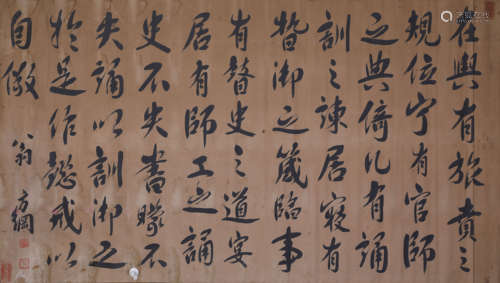 在輿有旅賁之
規位宁有官師
之典倚几有誦
訓之諫居寢有
暬御之箴臨事
有瞽史之道宴
居有師工之誦
史不失書矇不
失誦以訓御之
於是作懿戒以
自儆
翁方綱